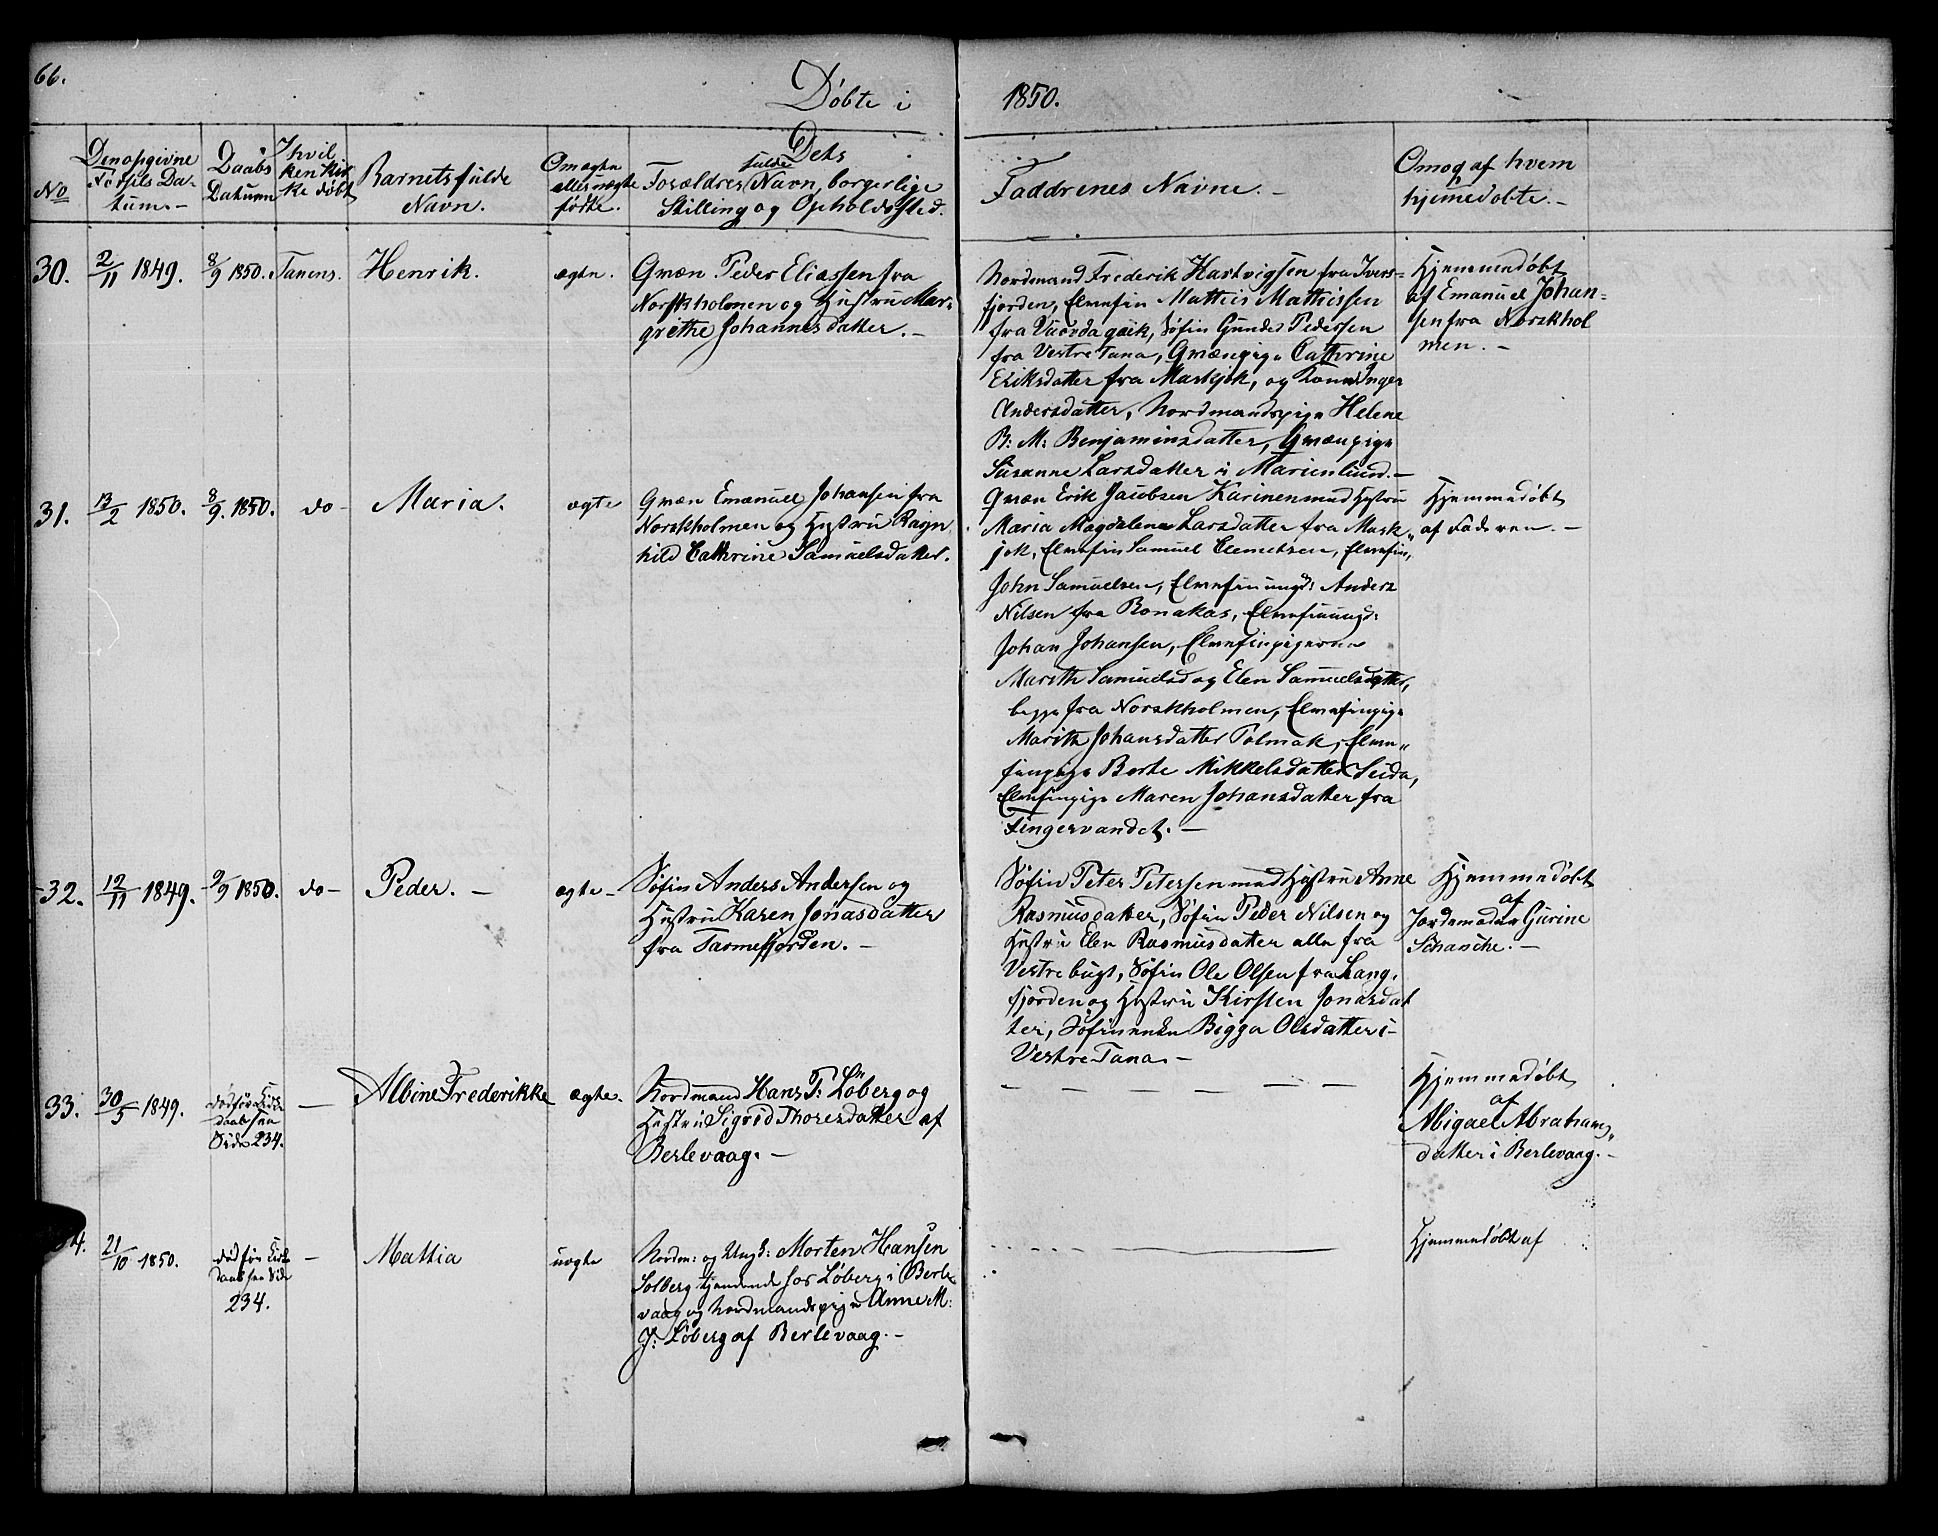 66.
Døbte i 1850.
No
Den opgivne Fødsels Datum.-
Daabs Datum
I hvilken Kirke døbt
Barnets fulde Navn.
Om ægte eller uægte født.
Dets Forældres fulde Navn, borgerlige Stilling og Opholdssted.
Faddrenes Navne.-
Om og af hvem hjemedøbte.-
30.
2/11 1849.
8/9 1850.
Tanens.
Henrik.
ægte.
Qvæn Peder Eliassen fra
Norskholmen og Hustru Mar-
grethe Johannesdatter.-
Nordmand Frederik Hartvigsen fra Ivers-
fjorden, Elvefin Mathis Mathissen
fra
Søfin Gunder Pedersen
fra Vestre Tana, Qvænpige Cathrine
Eriksdatter fra Maskjok, og Kone Inger
Andersdatter, Nordmandspige Helene
B: M: Benjaminsdatter, Qvænpige
Susanne Larsdatter i Marienlund.-
Hjemmedøbt
af Emanuel Johan-
sen fra Norskhol
men.-
31.
13/2 1850.
8/9. 1850.
do-
Maria.
ægte
Qvæn Emanuel Johansen fra
Norskholmen og Hustru Ragn
hild Cathrine Samuelsdatter.
Qvæn Erik Jacobsen Karinen med Hustru
Maria Magdalena Larsdatter fra Mask„
jok, Elvefin Samuel Clemetsen, Elvefin,
John Samuelsen, Elvefin ungd: Anders
Nilsen fra Bonakas, Elvefinungd:
Johan Johansen, Elvefinpigerne
Marith Samuelsd og Elen Samuelsdatter,
begge fra Norskholmen, Elvefinpige
Marith Johansdatter Polmak, Elve„
finpige Berte Mikkelsdatter Seida,
Elvefinpige Maren Johansdatter fra
Fingervandet.-
Hjemmedøbt
af Faderen.-
32.
12/11 1849.
9/9 1850.
do-
Peder.-
ægte-
Søfin Anders Andersen og
Hustru Karen Jonasdatter
fra Tarmefjorden.-
Søfin Peter Petersen med Hustru Anne
Rasmusdatter, Søfin Peder Nilsen og
Hustru Elen Rasmusdatter alle fra
Vestrebugt, Søfin Ole Olsen fra Lang-
fjorden og Hustru Kirsten Jonasdat
ter, Søfinenke Bigga Olsdatter i-
Vestre Tana.-
Hjemmedøbt
af
Jordemoder Gurine
Schanche.-
33.
30/5 1849.
død før Kirke
daaben sea
Side 234.
-
Albine Frederikke
ægte.
Nordmand Hans F: Løberg og
Hustru Sigrid Thoresdatter af
Berlevaag.-
- - - - -
Hjemmedøbt
af
Abigael Abrahams„
datter i Berlevaag.-
34.
21/10 1850.
død før Kirke
daab sea Side
234.
-
Mattia
uægte
Nordm: og Ungk: Morten Hansen
Solberg tjenende hos Løberg i Berle-
vaag og Nordmandspige Anne M:
J: Løberg af Berlevaag.-
Hjemmedøbt af